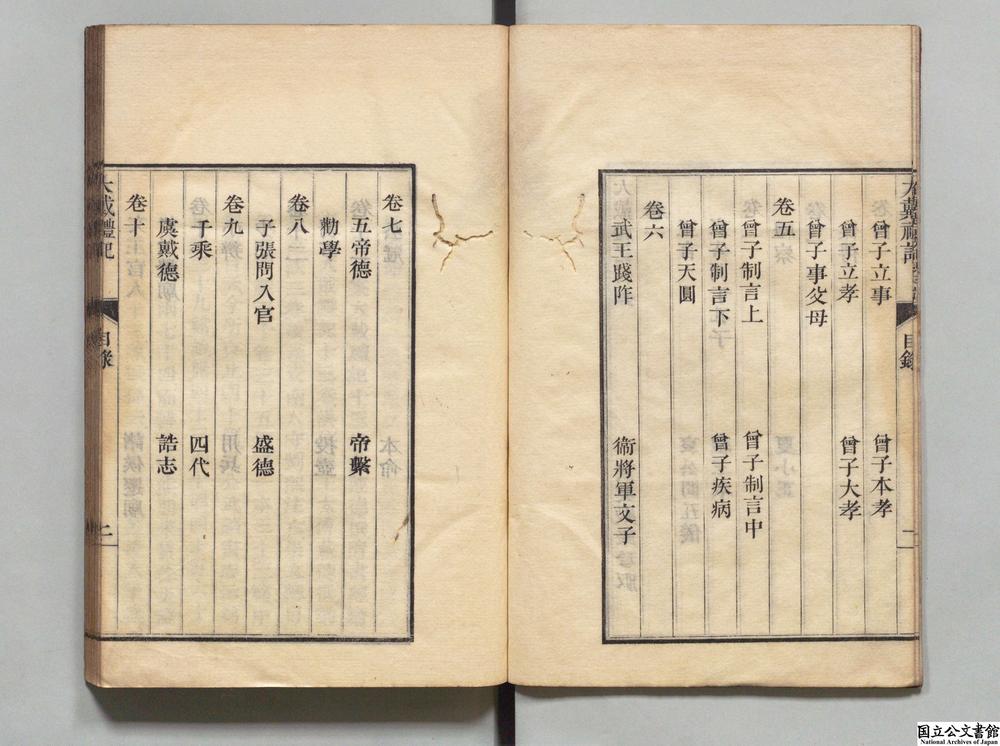 大戴禮記
目錄
二
曾子立事　曾子本孝
曾子立孝　曾子大孝
曾子事父母
卷五
曾子制言上　曾子制言中
曾子制言下　曾子疾病
曾子天圓
卷六
武王踐阼　衞將軍文子
卷七
五帝德　帝繫
勸學
卷八
子張問入官　盛德
卷九
千乘　四代
虞戴德　誥志
卷十
大戴禮記
目錄
二
国立公文書館
National Archives of Japan